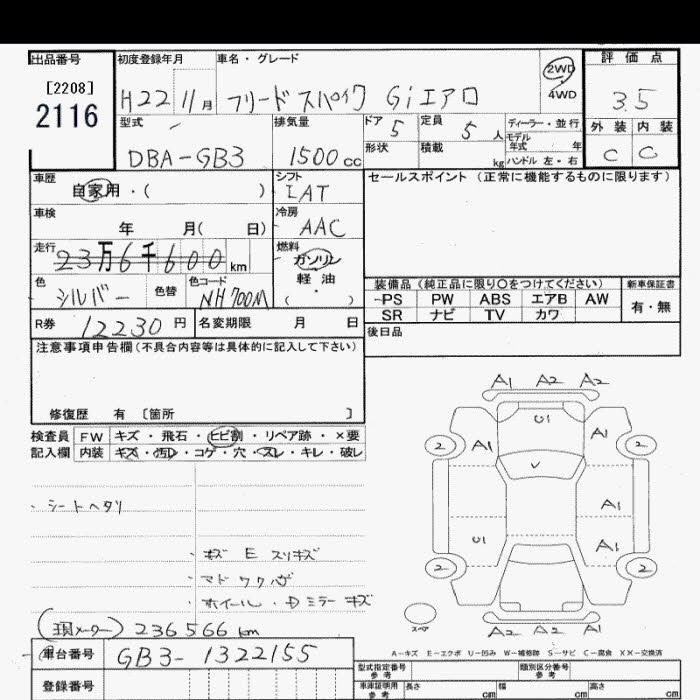 出品番号
[2208]
2116
初度登録年月
H22 11月
車名・グレード
フリードスパイク Giエアロ
2WD
4WD
評価点
3.5
外装 内装
C C
型式
DBA-GB3
排気量
1500cc
ドア
5
定員
5人
形状
積載
kg
ディーラー・並行
モデル年式 年
ハンドル 左・右
車歴
自家用・( )
シフト
LAT
セールスポイント (正常に機能するものに限ります)
車検
年 月( 日)
冷房
AAC
走行
23万6千600km
燃料
ガソリン
軽油
( )
色
シルバー
色替
色コード
NH700M
装備品(純正品に限り○をつけてください)
新車保証書
PS PW ABS エアB AW
有・無
SR ナビ TV カワ
R券
12230円
名変期限 月 日
後日品
注意事項申告欄(不具合内容等は具体的に記入して下さい)
修復歴 有 〔箇所 〕
検査員記入欄
FW キズ・飛石・ヒビ割・リペア跡・×要
内装 キズ・汚レ・コゲ・穴・スレ・キレ・破レ
A1 A2 A2
U1
2 A1 A1 2
V
A1
U1 A1
2 2
スペア
A2 A2 A1
・シートヘタリ
・キズ E スリキズ
・マドワクハゲ
・ホイール・Dミラーキズ
(現メーター) 236566km
A-キズ E-エクボ U-凹み W-補修跡 S-サビ C-腐食 XX-交換済
車台番号
GB3-1322155
登録番号
型式指定番号参考
類別区分番号参考
車庫証明用参考
長さ cm 幅 cm 高さ cm